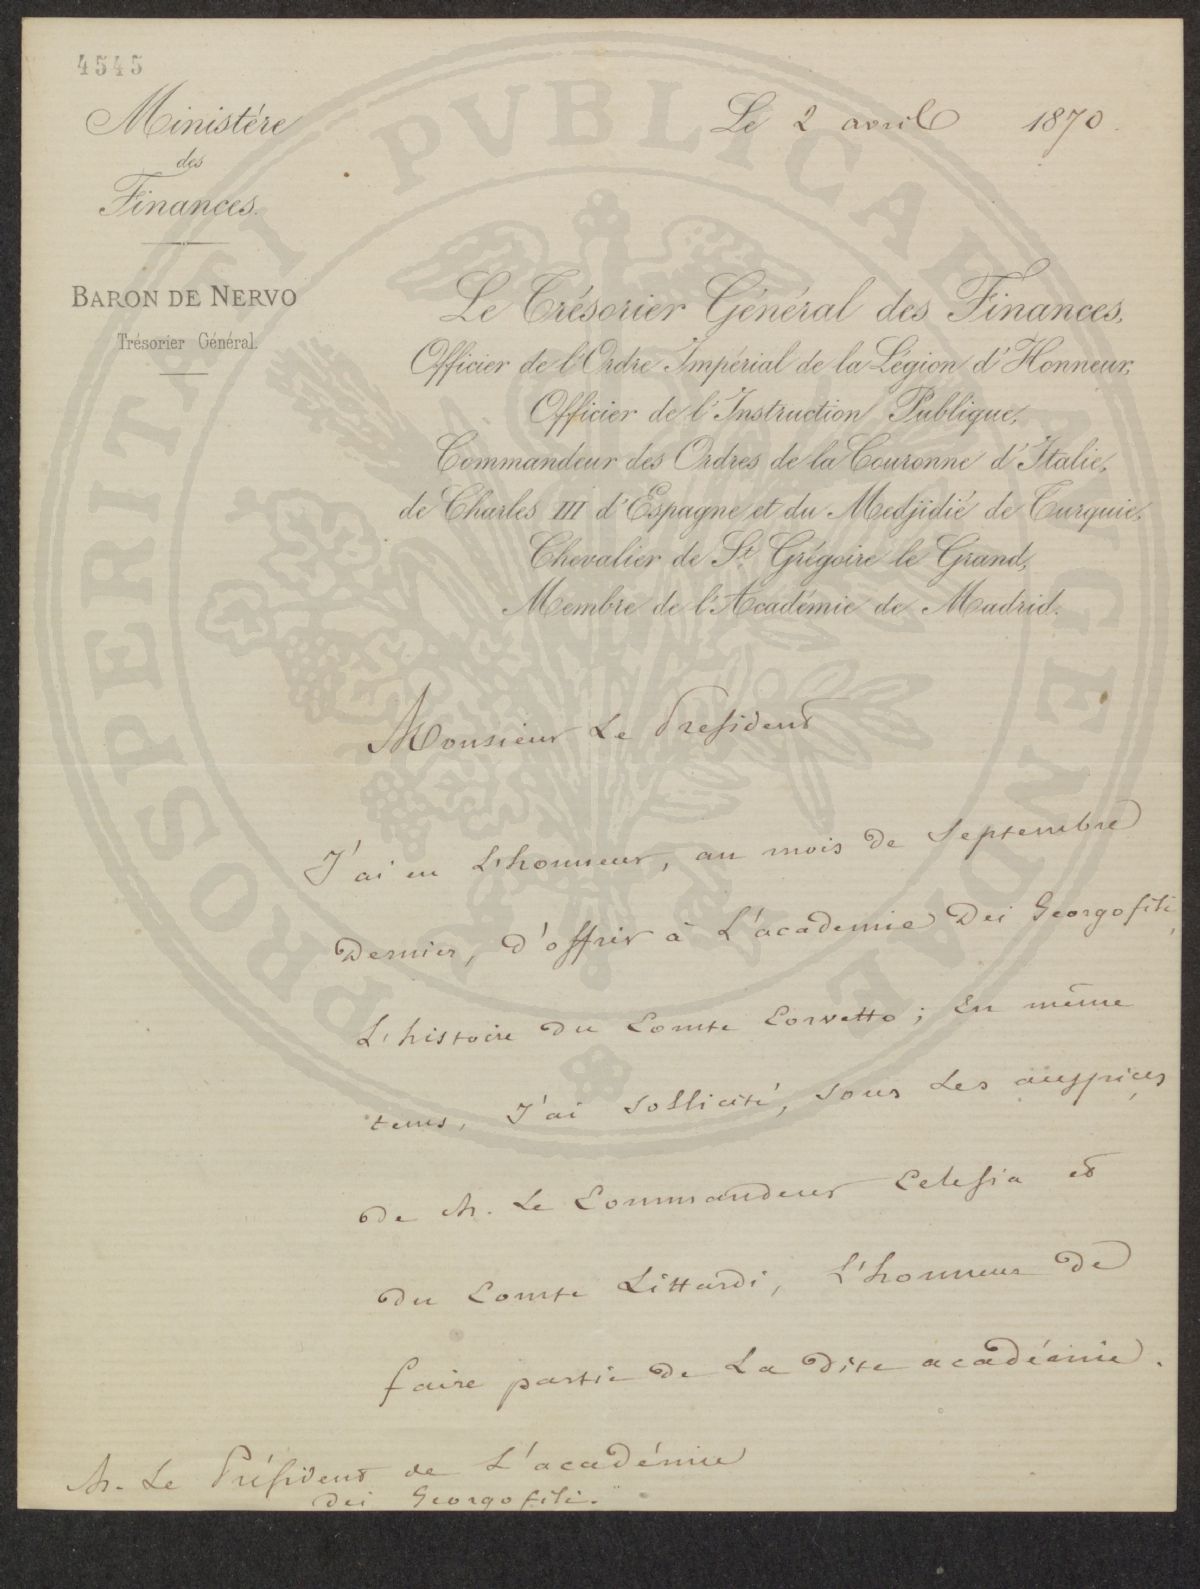 4545
Ministère
des
Finances.
BARON DE NERVO
Trésorier Général.
Le 2 avril 1870.
Le Trésorier Général des Finances,
Officier de l'Ordre Impérial de la Légion d'Honneur,
Officier de l'Instruction Publique,
Commandeur des Ordres de la Couronne d'Italie,
de Charles III d'Espagne et du Medjidié de Turquie,
Chevalier de St Grégoire le Grand,
Membre de l'Académie de Madrid.
Monsieur Le President
J'ai eu L'honneur, au mois de Septembre
Dernier, D'offrir à L'academie Dei Georgofili,
L'histoire du Comte Corvetto; En même
tems, J'ai sollicité, sous Les auspices
de M. Le Commandeur Celesia et
du Comte Littardi, L'honneur de
faire partie de La dite académie.
M. Le Président de L'académie
dei Georgofili.
PROSPERITATI PVBLICAE AVGENDAE